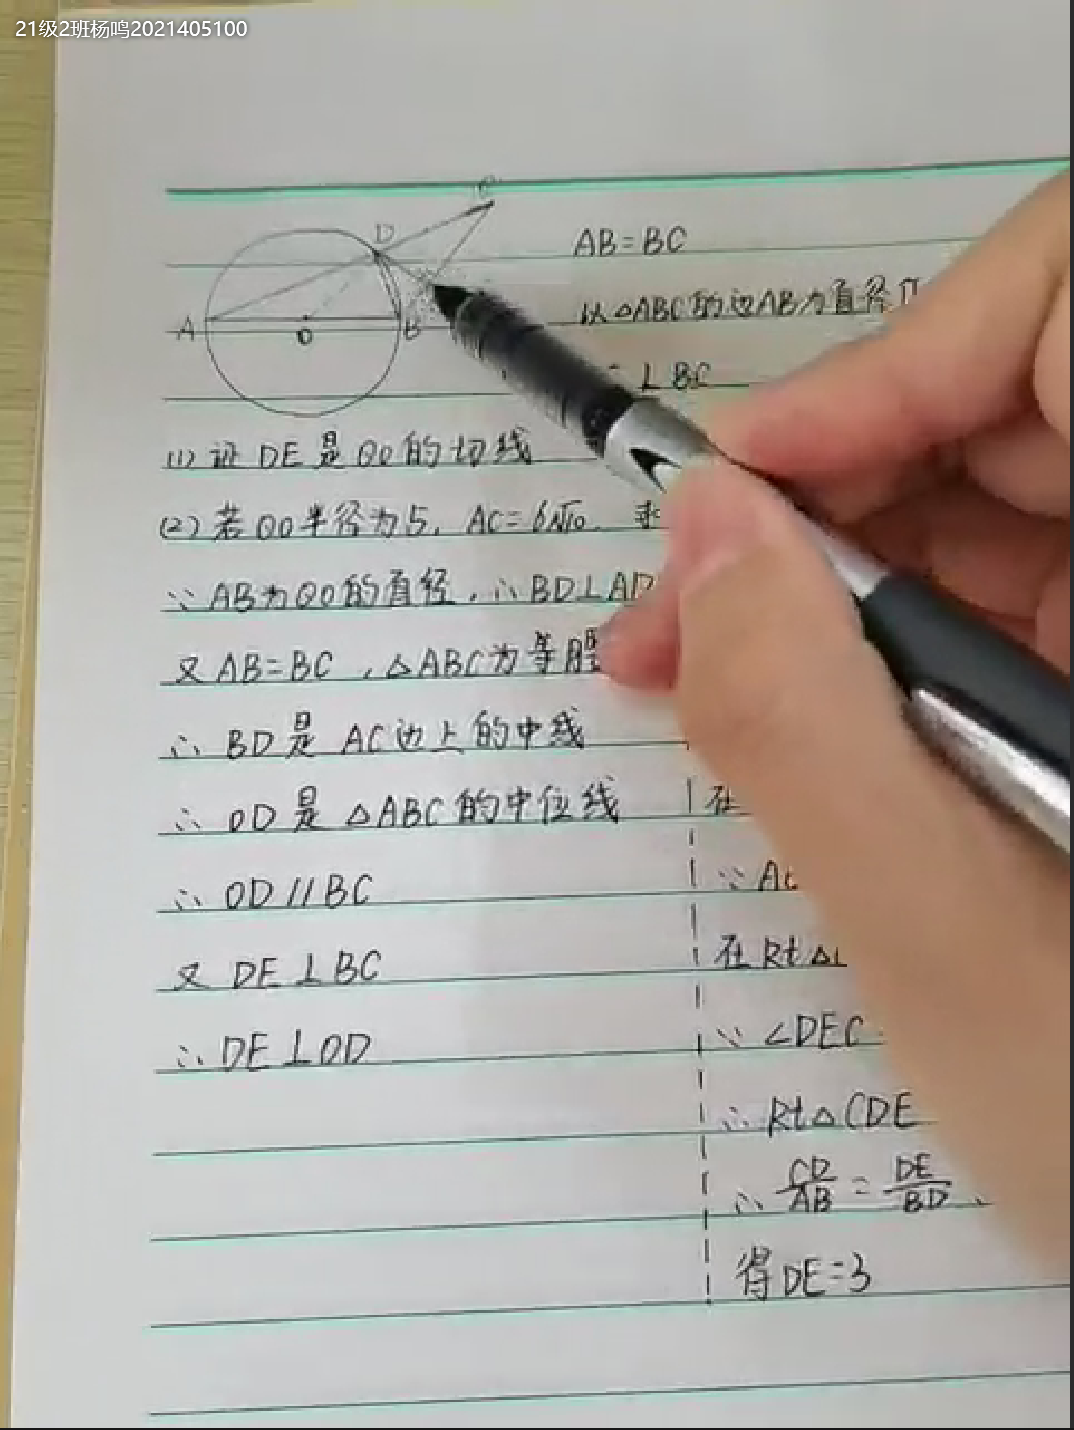 21级2班杨鸣2021405100
C
D
A
O
B
AB=BC
以△ABC的边AB为直径
⊥BC
(1)证DE是⊙O的切线
(2)若⊙O半径为5,AC=6√10. 求
∵AB为⊙O的直径,∴BD⊥AD
又AB=BC,△ABC为等腰
∴BD是AC边上的中线
∴OD是△ABC的中位线
∴OD//BC
又DE⊥BC
∴DE⊥OD
在
∵AC
在Rt△
∵∠DEC
∴Rt△CDE
∴CD/AB=DE/BD
得DE=3